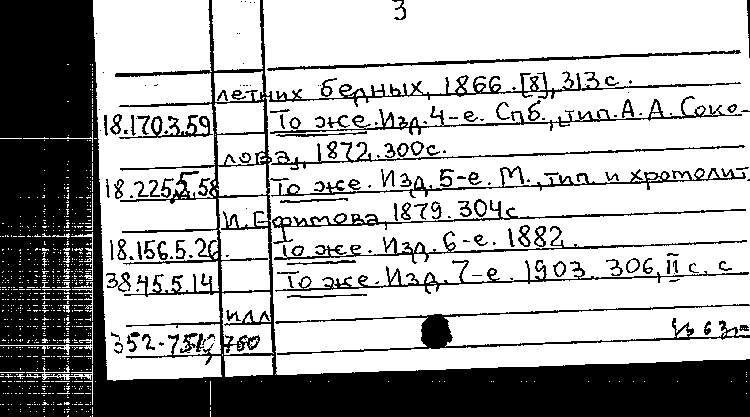 3
летних бедных, 1866. [8], 313 с.
18.170.3.59 То же. Изд. 4-е. Спб., тип. А. А. Соко-
лова, 1872. 300с.
18.225.5.58 То же. Изд. 5-е. М., тип. и хромолит.
И. Ефимова, 1879. 304с
18.156.5.26. То же. Изд. 6-е. 1882.
38.45.5.14 То же. Изд. 7-е. 1903. 306, II с. с
илл
352-7519,760